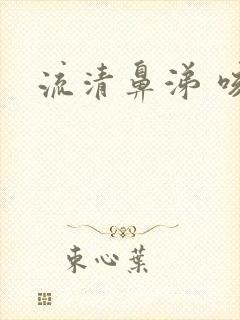 流清鼻涕 咳
束心葉